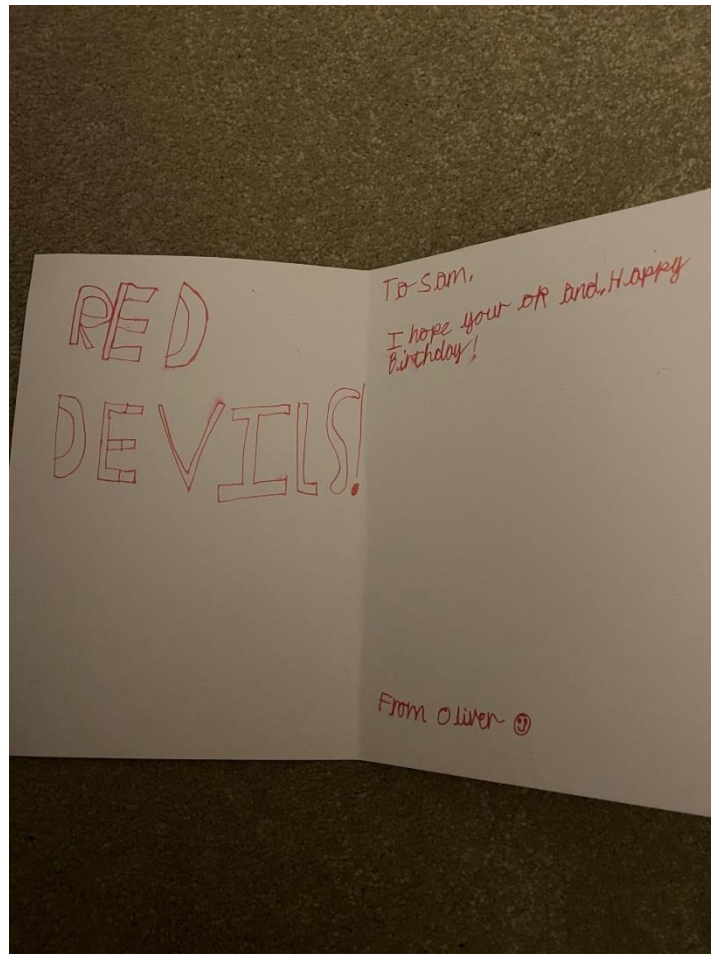 RED
DEVILS!
To Sam,
I hope your ok and, Happy
Birthday!
From Oliver ☺